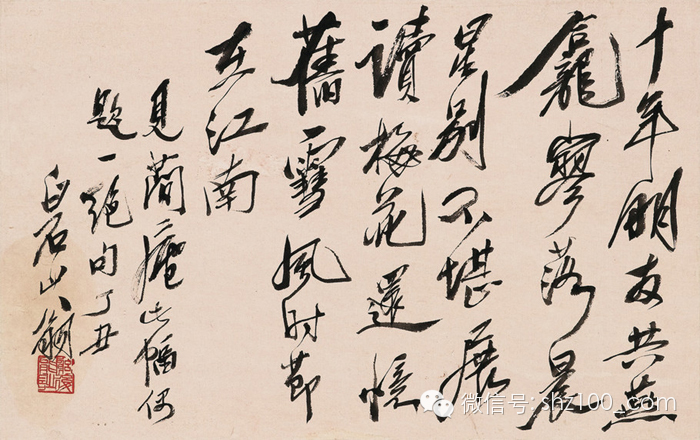 十年朋友共燕
龕寥落晨
星別不堪展
讀梅花還憶
舊雪風時節
在江南
見簡庵此幅偶
題一絕句丁丑
白石山翁
微信号: shz100_com